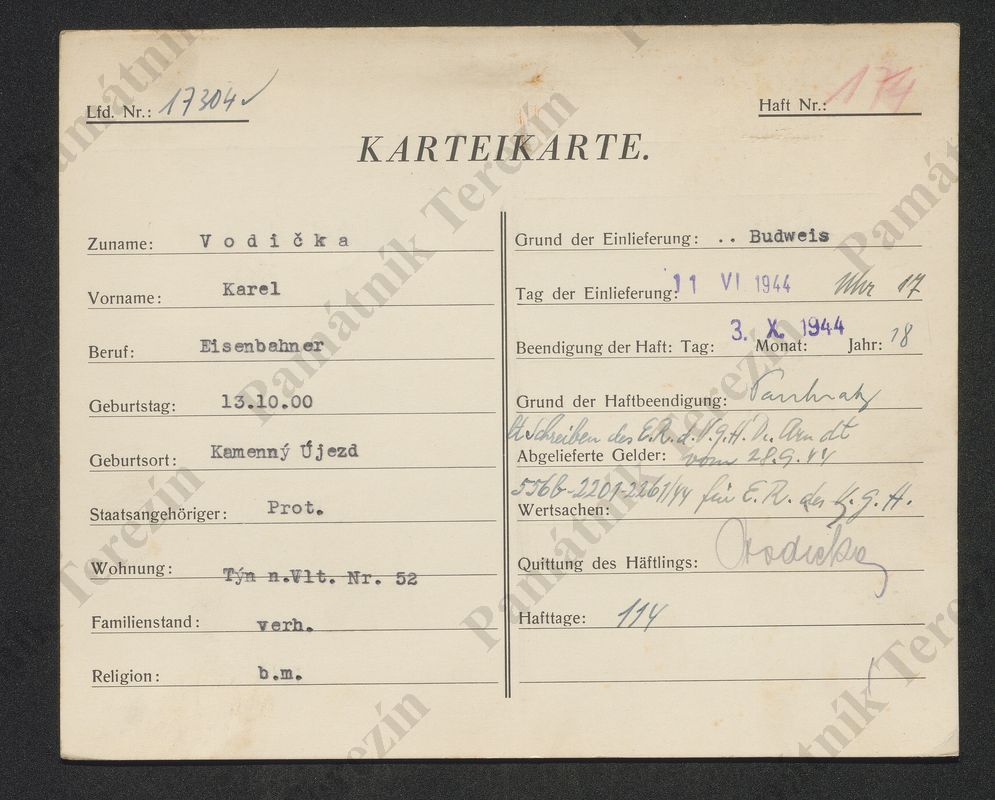 Lfd. Nr.: 17304
Haft Nr.: 174
KARTEIKARTE.
Zuname: Vodička
Vorname: Karel
Beruf: Eisenbahner
Geburtstag: 13.10.00
Geburtsort: Kamenný Újezd
Staatsangehöriger: Prot.
Wohnung: Týn n.Vlt. Nr. 52
Familienstand: verh.
Religion: b.m.
Grund der Einlieferung: .. Budweis
Tag der Einlieferung: 11 VI 1944 Uhr 17
Beendigung der Haft: Tag: 3. X. 1944 Monat: Jahr: 18
Grund der Haftbeendigung: Pankratz
lt Schreiben des E.R. d. V.G.H. Dr. Arndt
Abgelieferte Gelder: vom 28.9.44
556b-2201-2261/44 für E.R. des V.G.H.
Wertsachen:
Quittung des Häftlings: Vodicka
Hafttage: 114
Památník Terezín